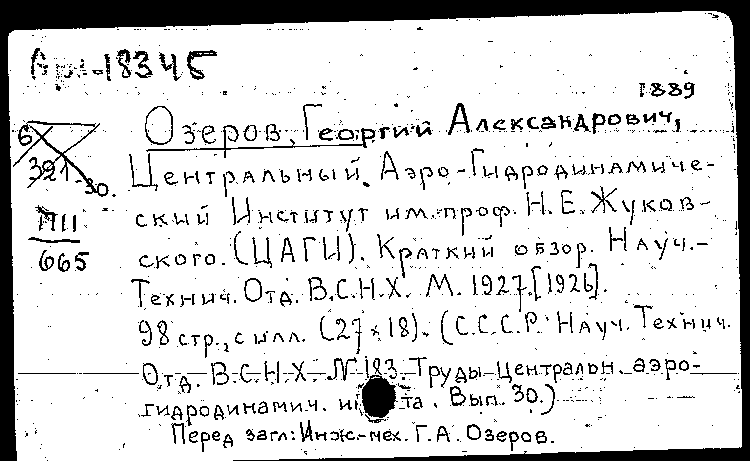 Арх-18345
1889
Озеров, Георгий Александрович,
6
391-30.
Центральный Аэро-Гидродинамиче-
ский Институт им. проф. Н. Е. Жуков-
МП
665
ского. (ЦАГИ). Краткий обзор. Науч.-
Технич. Отд. В.С.Н.Х. М. 1927.[1926].
98 стр., с илл. (27×18). (С.С.С.Р. Науч. Технич.
Отд. В.С.Н.Х. № 183. Труды Центральн. аэро-
гидродинамич. та. Вып. 30.)
Перед загл: Инж.-мех. Г. А. Озеров.